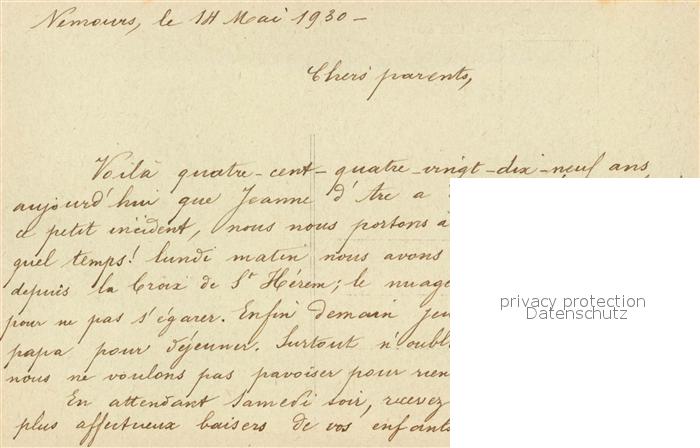 Nemours, le 14 Mai 1930 -
Chers parents,
Voilà quatre-cent-quatre-vingt-dix-neuf ans
aujourd'hui que Jeanne d'Arc a
ce petit incident, nous nous portons à
quel temps! lundi matin nous avons
depuis la Croix de St Hérem; le nuage
pour ne pas s'égarer. Enfin demain jeu
papa pour déjeuner. Surtout n'oubl
nous ne voulons pas pavoiser pour rien
En attendant Samedi soir, recevez
plus affectueux baisers de vos enfants
privacy protection
Datenschutz